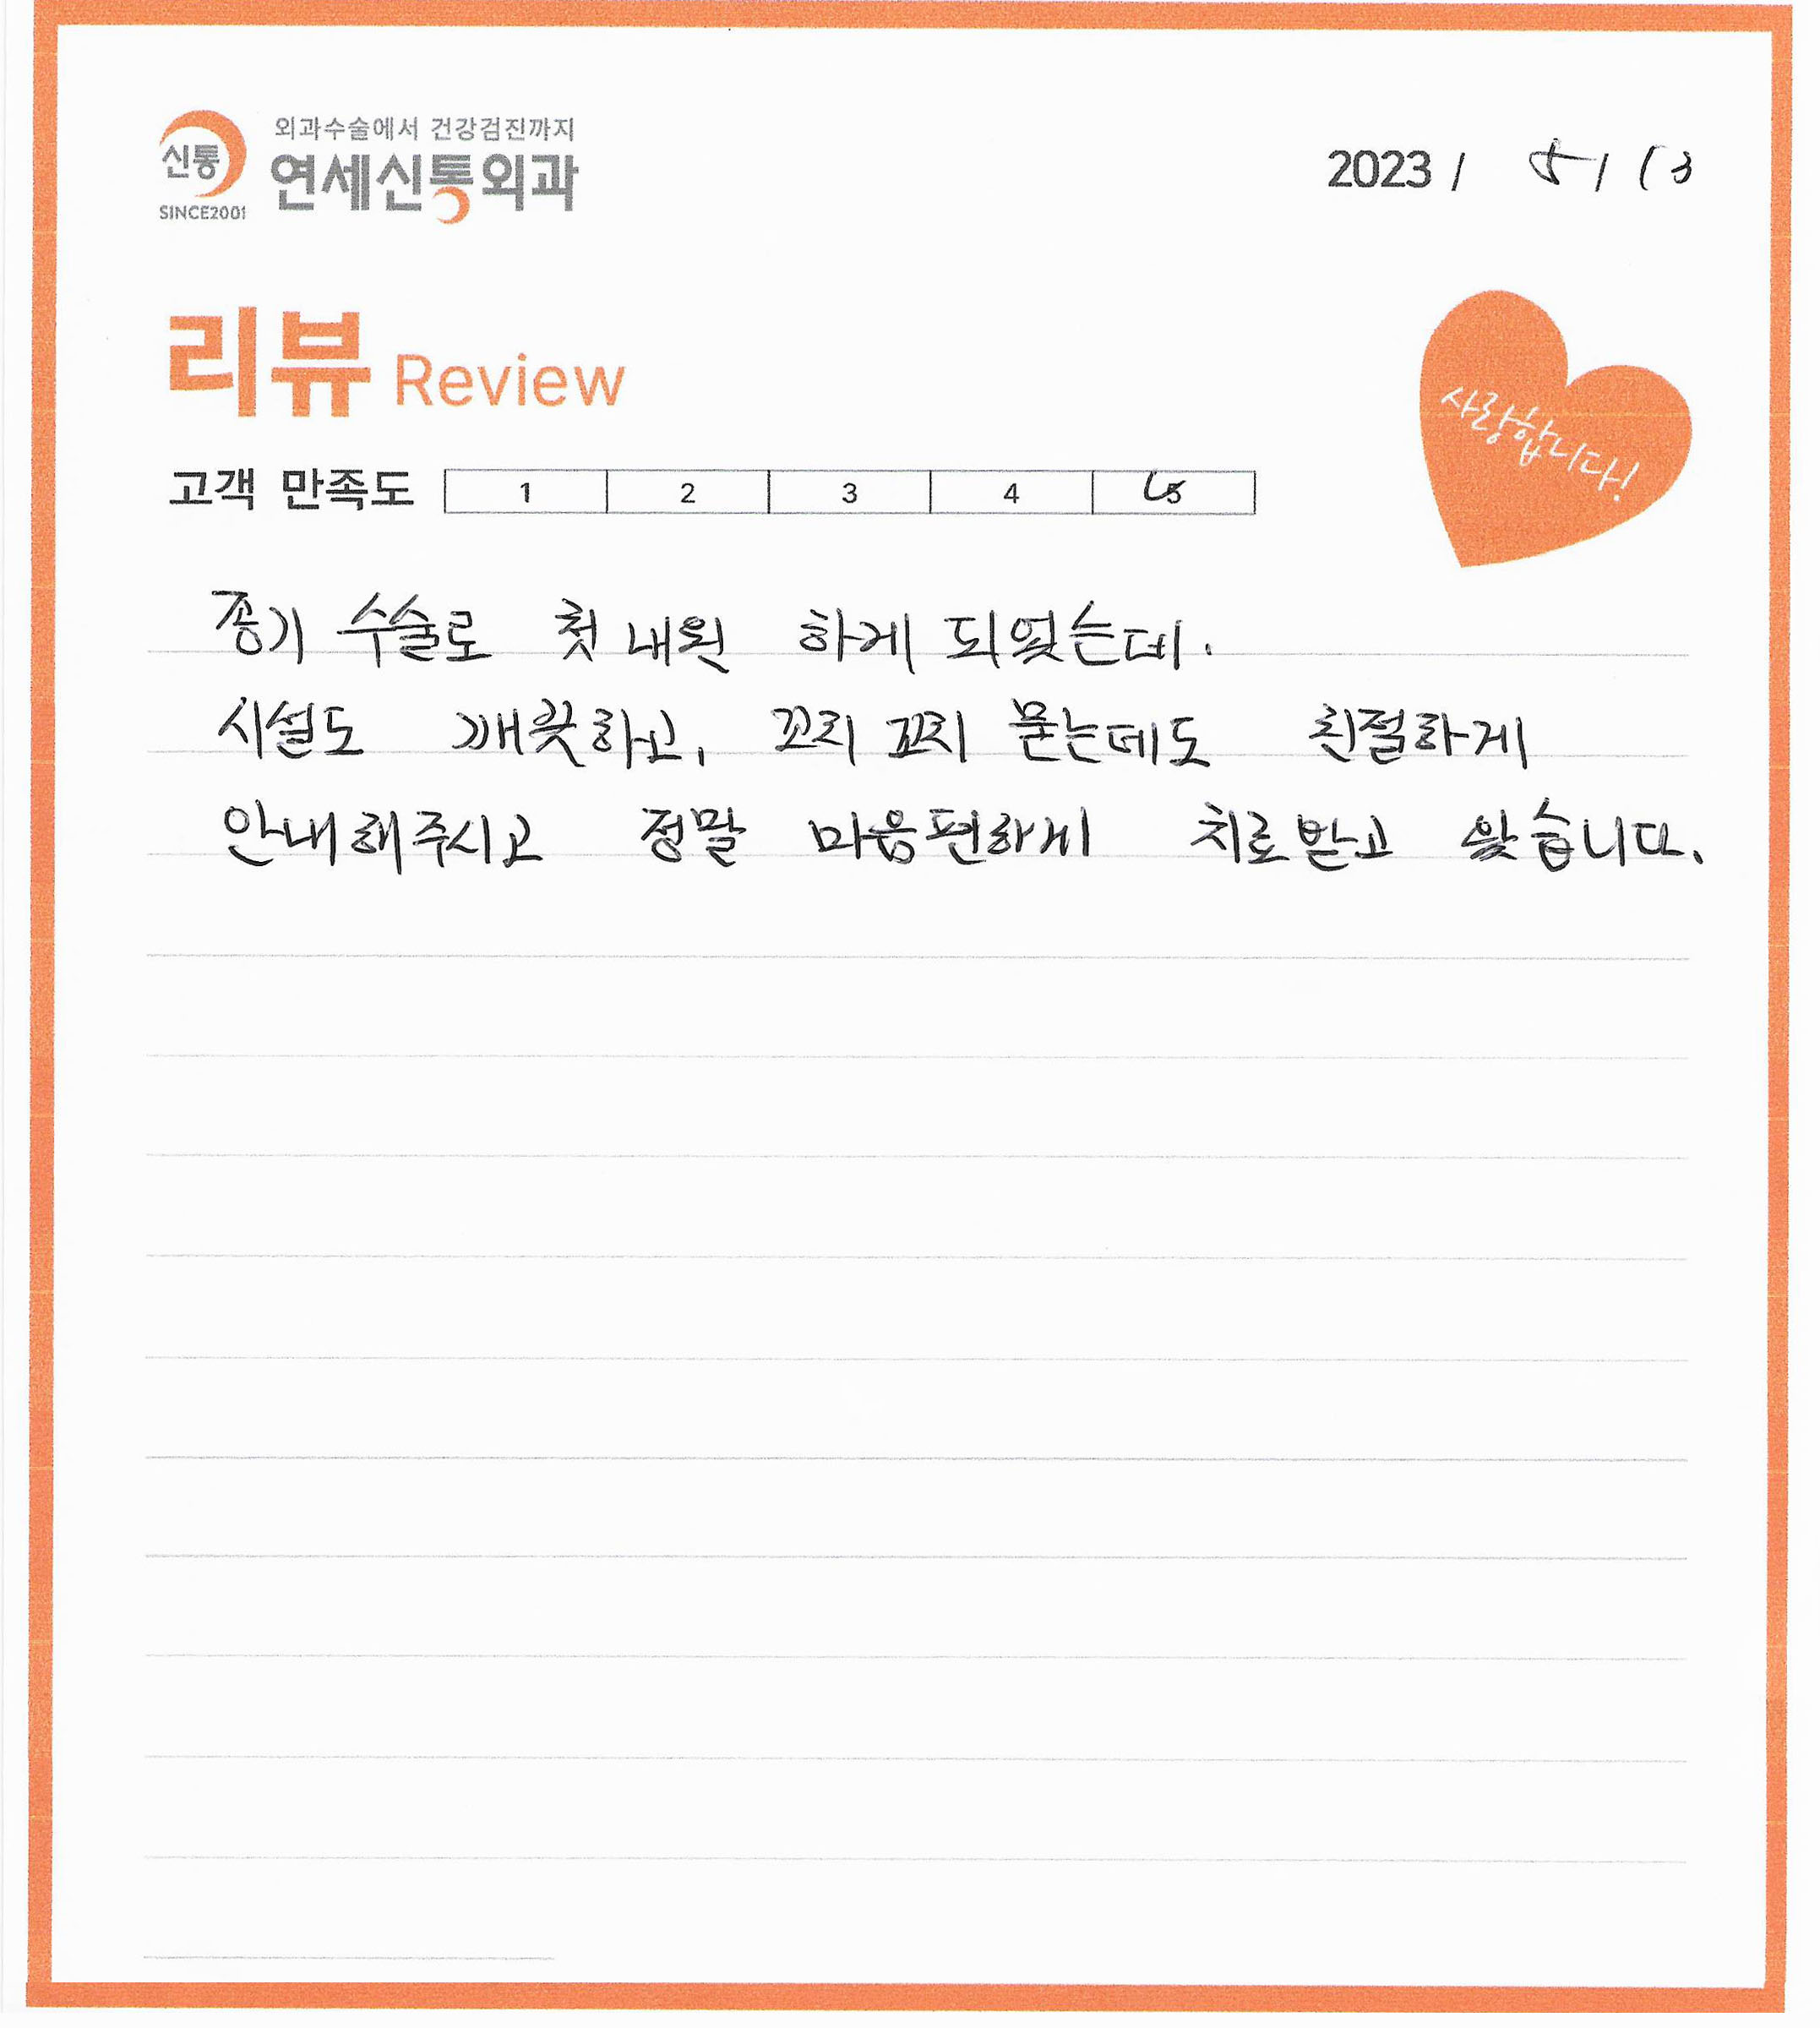 신통
SINCE2001
외과수술에서 건강검진까지
연세신통외과
2023 / 5 / 13
리뷰 Review
사랑합니다!
고객 만족도 1 2 3 4 5
종기 수술로 첫 내원 하게 되었는데.
시설도 깨끗하고, 꼬치 꼬치 묻는데도 친절하게
안내해주시고 정말 마음편하게 치료받고 있습니다.